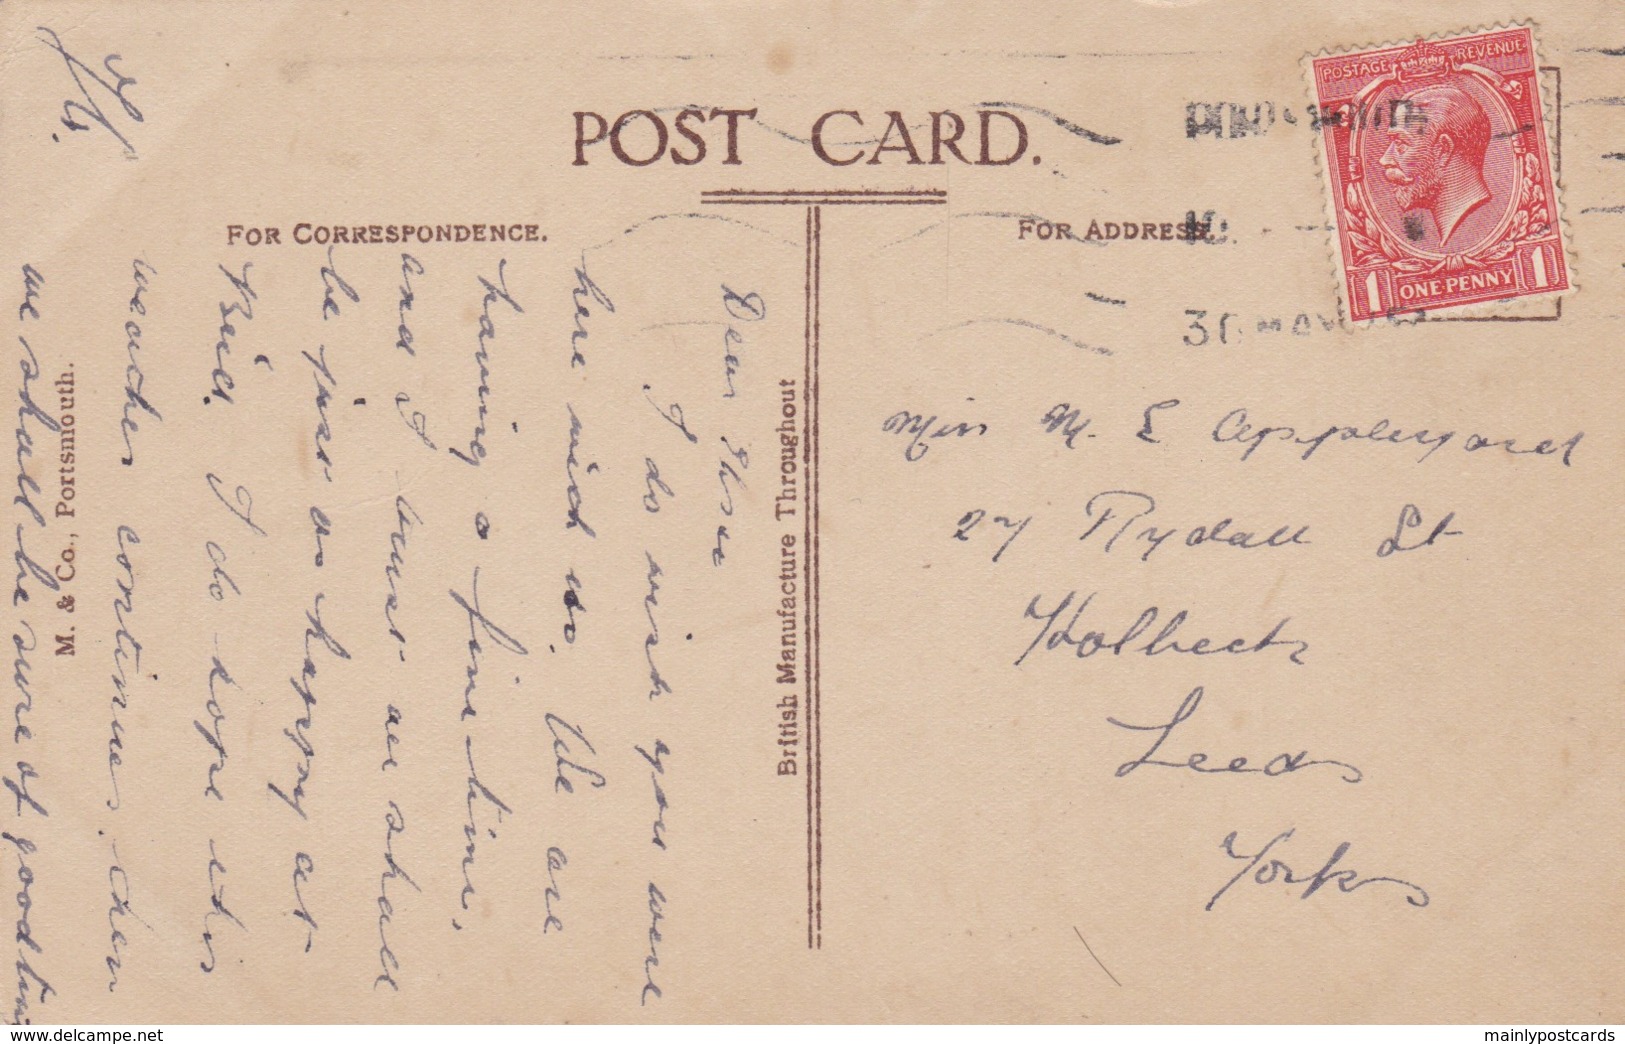 POST CARD.
FOR CORRESPONDENCE.
FOR ADDRESS.
POSTAGE REVENUE
1 ONE PENNY 1
30 MAY
British Manufacture Throughout
M. & Co., Portsmouth.
Dear
I do wish you were
here with us. We are
having a fine time,
and I trust we shall
be just as happy at
I do hope this
weather continues, then
we shall be sure of good
Miss M. E Appleyard
27 Rydall St
Holbeck
Leeds
Yorks
www.delcampe.net
mainlypostcards